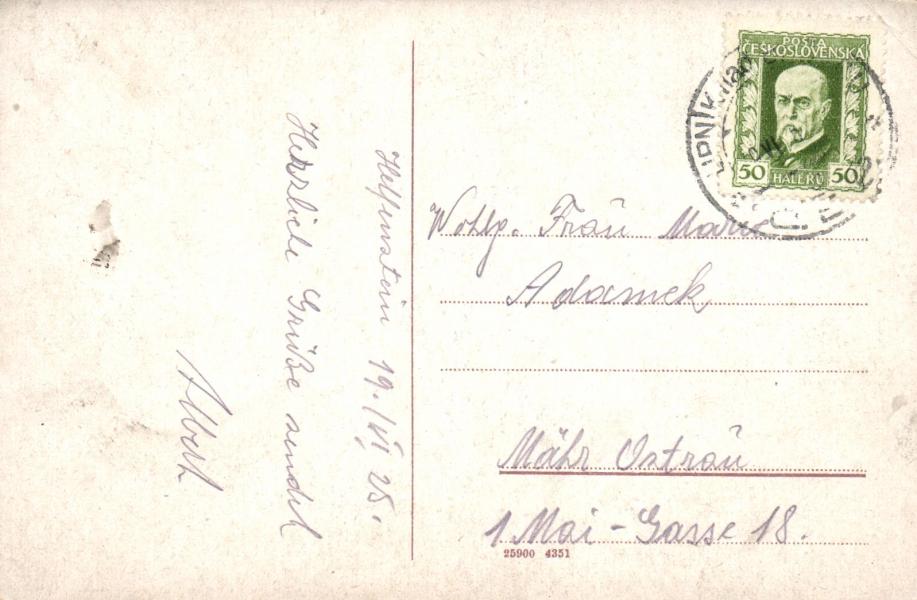 Helfenstein 19./VI. 28.
Herzliche Grüße sendet
Albert
POŠTA
ČESKOSLOVENSKÁ
50 HALÉŘŮ 50
LIPNÍK
Wohlg. Frau Marie
Adamek
Mähr Ostrau
1 Mai-Gasse 18.
25900 4351